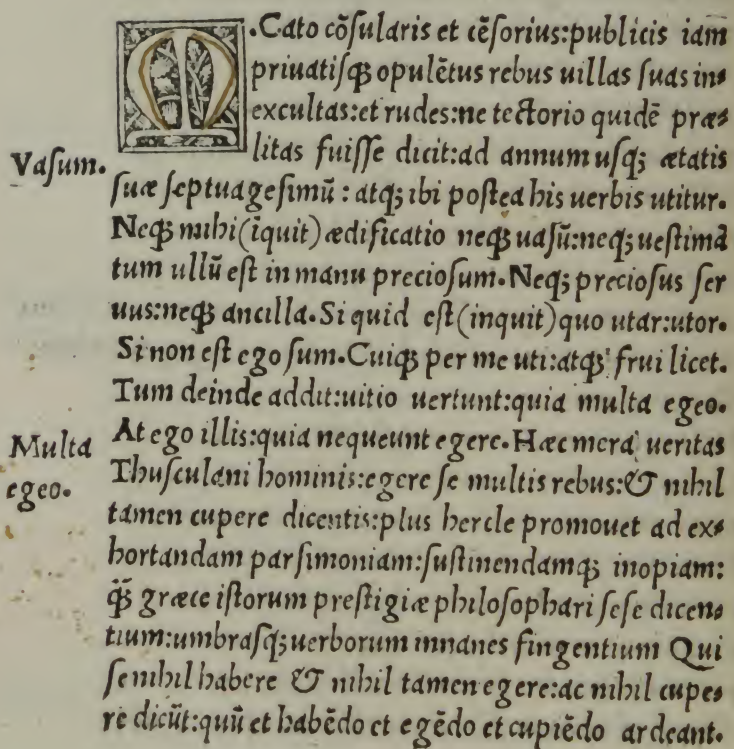 M.Cato cõſularis et cẽſorius:publicis iam
priuatiſqȝ opulẽtus rebus uillas ſuas in⸗
excultas:et rudes:ne tectorio quidẽ præ⸗
litas fuiſſe dicit:ad annum uſqȝ ætatis
Vaſum.
ſuæ ſeptuageſimũ : atqȝ ibi poſtea his uerbis utitur.
Neqȝ mihi(īquit) ædificatio neqȝ uaſũ:neqȝ ueſtimã
tum ullũ eſt in manu precioſum. Neqȝ precioſus ſer
uus:neqȝ ancilla. Si quid eſt (inquit) quo utar:utor.
Si non eſt ego ſum. Cuiqȝ per me uti:atqȝ frui licet.
Tum deinde addit:uitio uertunt:quia multa egeo.
Multa
egeo.
At ego illis:quia nequeunt egere. Hæc mera ueritas
Thuſculani hominis:egere ſe multis rebus:& nihil
tamen cupere dicentis:plus hercle promouet ad ex⸗
hortandam parſimoniam:ſuſtinendamqȝ inopiam:
q̃ȝ græce iſtorum preſtigiæ philoſophari ſeſe dicen⸗
tium:umbraſqȝ uerborum innanes fingentium Qui
ſe nihil habere & nihil tamen egere:ac nihil cupe⸗
re dicũt:quũ et habẽdo et egẽdo et cupiẽdo ardeant.